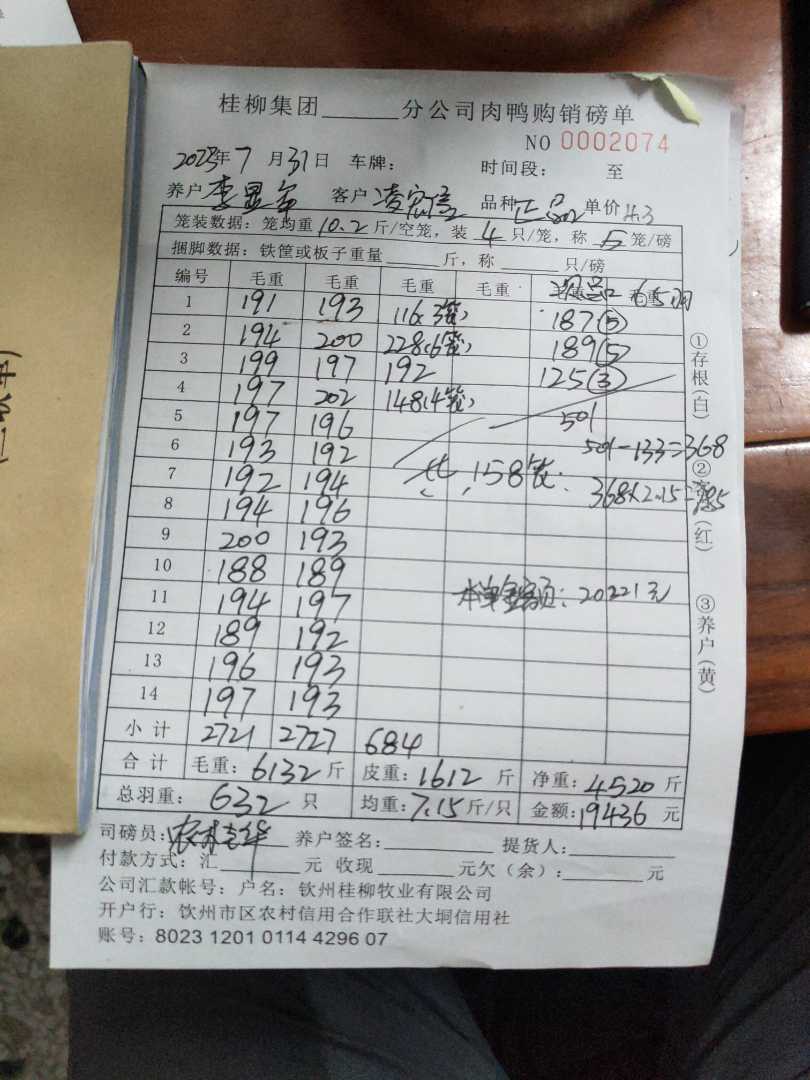 桂柳集团______分公司肉鸭购销磅单
NO 0002074
2023年7月31日 车牌: 时间段: 至
养户 李显年 客户 凌宏信 品种 正品 单价 4.3
笼装数据: 笼均重 10.2 斤/空笼, 装 4 只/笼, 称 5 笼/磅
捆脚数据: 铁筐或板子重量______斤, 称______只/磅
编号 毛重 毛重 毛重 毛重 毛重 毛重
1 191 193 116(3笼) 187(5)
2 194 200 228(6笼) 189(5)
3 199 197 192 125(3)
4 197 202 148(4笼)
5 197 196 501
6 193 192 501-133=368
7 192 194 共158笼.
8 194 196 368×2.15=
9 200 193
10 188 189
11 194 197 本单金额: 20221元
12 189 192
13 196 193
14 197 193
小计 2721 2727 684
合计 毛重: 6132 斤 皮重: 1612 斤 净重: 4520 斤
总羽重: 632 只 均重: 7.15 斤/只 金额: 19436 元
司磅员: 养户签名:________ 提货人:________
付款方式: 汇________元 收现________元欠(余):________元
公司汇款帐号: 户名: 钦州桂柳牧业有限公司
开户行: 钦州市区农村信用合作联社大垌信用社
账号: 8023 1201 0114 4296 07
①存根(白)
②(红)
③养户(黄)